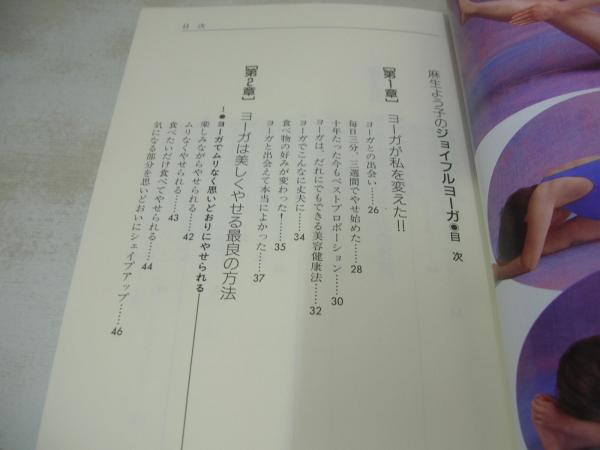 目次
麻生よう子のジョイフルヨーガ●目次
[第1章] ヨーガが私を変えた!!
ヨーガとの出会い……26
毎日三分、三週間でやせ始めた……28
十年たった今もベストプロポーション……30
ヨーガは、だれにでもできる美容健康法……32
ヨーガでこんなに丈夫に……34
食べ物の好みが変わった!……35
ヨーガと出会えて本当によかった……37
[第2章] ヨーガは美しくやせる最良の方法
1●ヨーガでムリなく思いどおりにやせられる
楽しみながらやせられる……42
ムリなくやせられる……43
食べたいだけ食べてやせられる……44
気になる部分を思いどおりにシェイプアップ……46